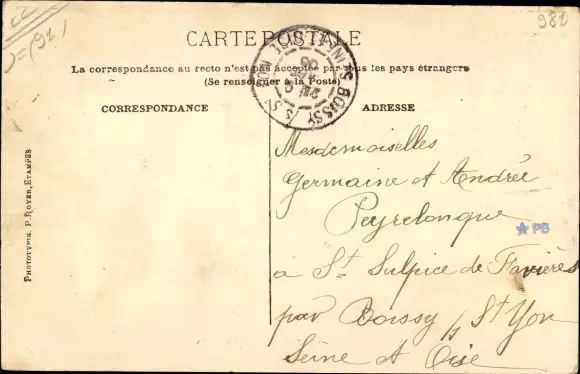 (91)
982
CARTE POSTALE
La correspondance au recto n'est pas acceptée par tous les pays étrangers
(Se renseigner à la Poste)
CORRESPONDANCE
ADRESSE
BOISSY S. ST YON
SEINE ET OISE
Mesdemoiselles
Germaine et Andrée
Peyrelongue
à St Sulpice de Favières
par Boissy s/ St Yon
Seine et Oise
PB
PHOTOTYPIE. P. ROYER, ETAMPES